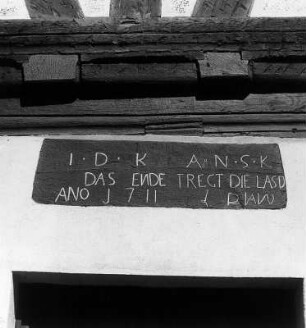 I · D · K A · N · S · K
DAS ENDE TREGT DIE LASD
ANO 1711